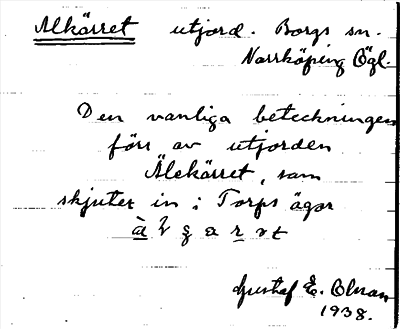 Alkärret utjord. Borgs sn.
Norrköping Ögl.
Den vanliga beteckningen
förr av utjorden
Älekärret, som
skjuter in i Torps ägor
Gustaf E. Olsson
1938.